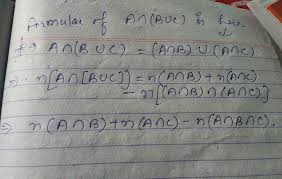 Formulae of A∩(B∪C) is
A∩(B∪C) = (A∩B)∪(A∩C)
⇒ n[A∩[B∪C]] = n(A∩B)+n(A∩C)
-n[(A∩B)∩(A∩C)]
⇒ n(A∩B)+n(A∩C)-n(A∩B∩C).